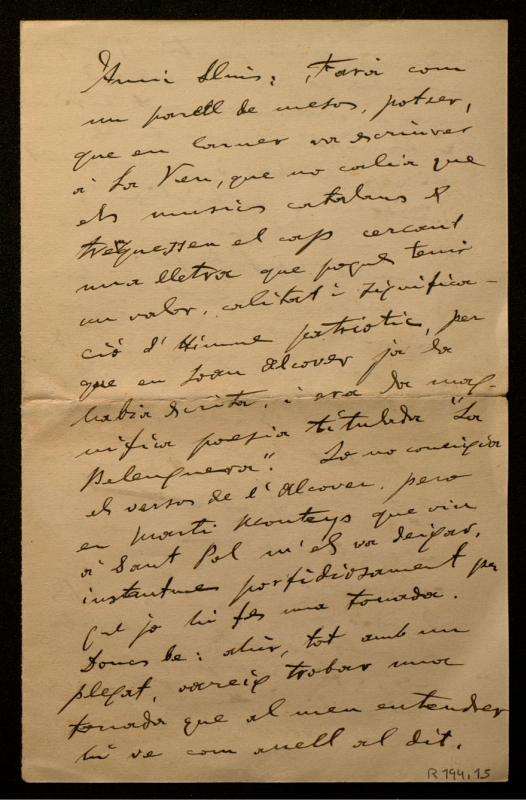 Amic Lluis; Farà com
un parell de mesos, potser,
que en Carner va escriurer
à La Veu, que no calia que
els musics catalans s'
trenquessen el cap cercant
una lletra que pogués tenir
un valor, calitat i significa-
ció d'Himne patriotic, per
que en Joan Alcover ja la
habia escrita, i era la mag-
nifica poesia titulada "La
Balenguera". Jo no coneixia
els versos de l'Alcover, pero
en Martí Monteys que viu
à Sant Pol m'els va deixar,
instantme porfidiosament per
que jo hi fes una tonada.
Doncs be: ahir, tot amb un
plegat, vareig trobar una
tonada que al meu entendrer
hi ve com anell al dit.
R 194.15